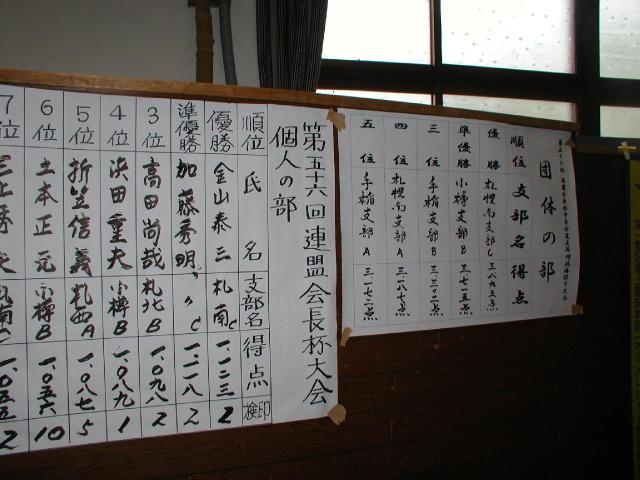 団体の部
順位 支部名 得点
優勝 札幌南支部C 三八九五点
準優勝 小樽支部B 三七一五点
三位 手稲支部B 三三〇二点
四位 札幌南支部A 三一八七点
五位 手稲支部A 三一七二点
第五十六回連盟会長杯大会
個人の部
順位 氏名 支部名 得点 検印
優勝 金山泰三 札南C 一、一二三 2
準優勝 加藤秀明 〃C 一、一一八 2
3位 高田尚哉 札北B 一、〇九八 2
4位 浜田重夫 小樽B 一、〇八九 1
5位 折笠信義 札西A 一、〇八七 5
6位 土本正元 小樽B 一、〇五六 10
7位 札南C 一、〇五五 2